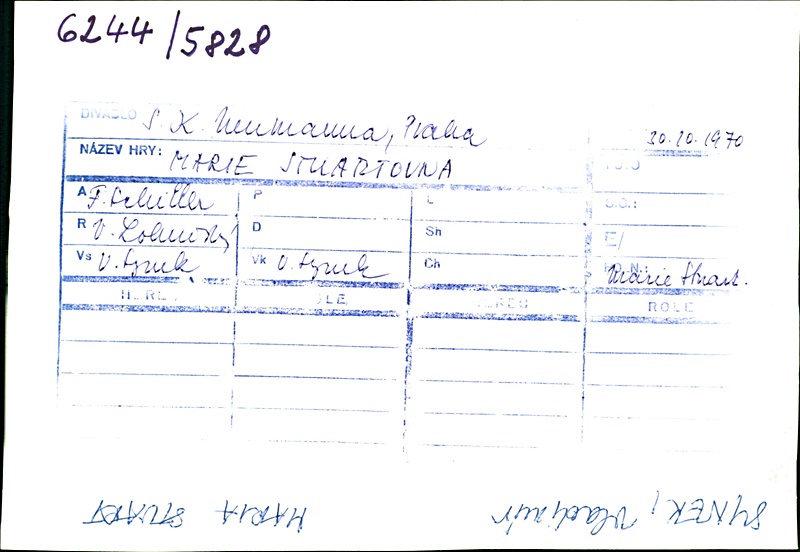 6244/5828
DIVADLO S. K. Neumanna, Praha 30.10.1970
NÁZEV HRY: MARIE STUARTOVNA
A F. Schiller P L
R V. D Sh E/
Vs V. Synek Vk V. Synek Ch Marie Stuart.
ROLE
SYNEK, Vladimír MARIA STUART